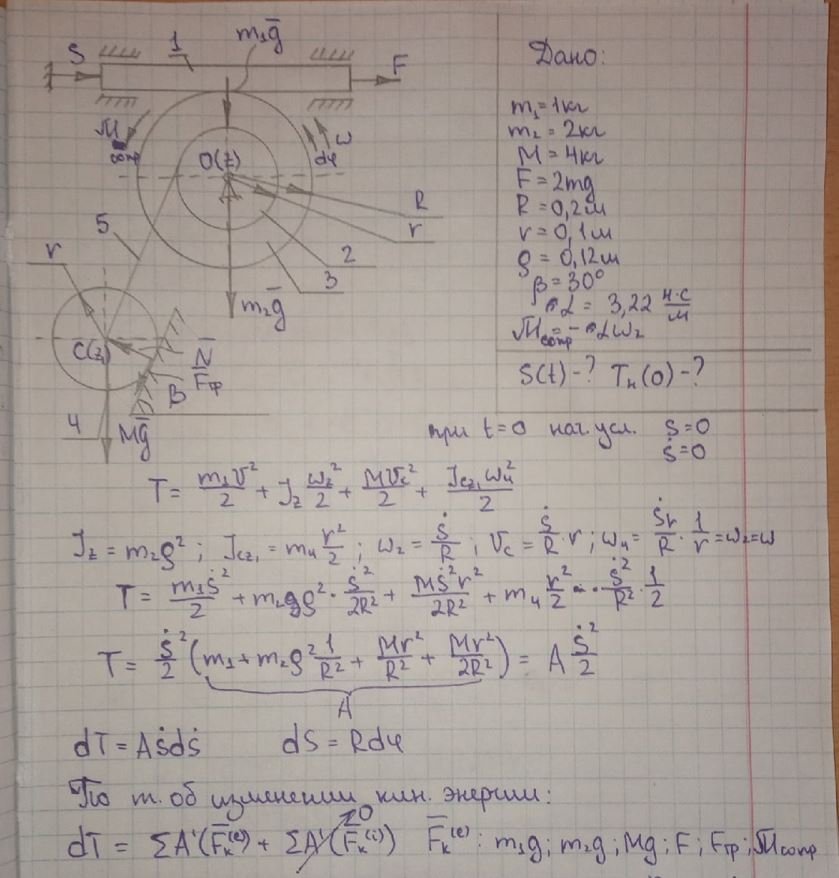 S
1
m₁g̅
F
Mсопр
ω
dφ
O(z)
R
r
5
2
3
r
m₂g̅
C(z₁)
N̅
F̅тр
β
4
Mg̅
Дано:
m₁ = 1кг
m₂ = 2кг
M = 4кг
F = 2mg
R = 0,2м
r = 0,1м
ρ = 0,12м
β = 30°
α = 3,22 Н·с/м
Mсопр = -αω₂
S(t) - ? Tн(0) - ?
при t=0 нач. усл. S=0
Ṡ=0
T = m₁V²/2 + J_z ω₂²/2 + MV_c²/2 + J_cz₁ω₄²/2
J_z = m₂ρ²; J_cz₁ = m₄ r²/2; ω₂ = Ṡ/R; V_c = Ṡ/R · r; ω₄ = Ṡr/R · 1/r = ω₂ = ω
T = m₁Ṡ²/2 + m₂ρ² · Ṡ²/2R² + MṠ²r²/2R² + m₄ r²/2 · Ṡ²/R² · 1/2
T = Ṡ²/2 (m₁ + m₂ρ² 1/R² + Mr²/R² + Mr²/2R²) = A Ṡ²/2
A
dT = AṠdṠ dS = Rdφ
По т. об изменении кин. энергии:
dT = ΣA'(F̅ₖ⁽ᵉ⁾) + ΣA'(F̅ₖ⁽ⁱ⁾) 0 F̅ₖ⁽ᵉ⁾: m₁g; m₂g; Mg; F; Fтр; Mсопр